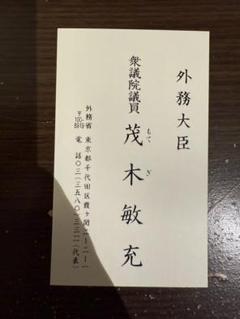 外務大臣
衆議院議員
茂木敏充
もてぎ
外務省 東京都千代田区霞ヶ関二ー二ー一
〒100-8919
電話〇三(三五八〇)三三一一(代表)